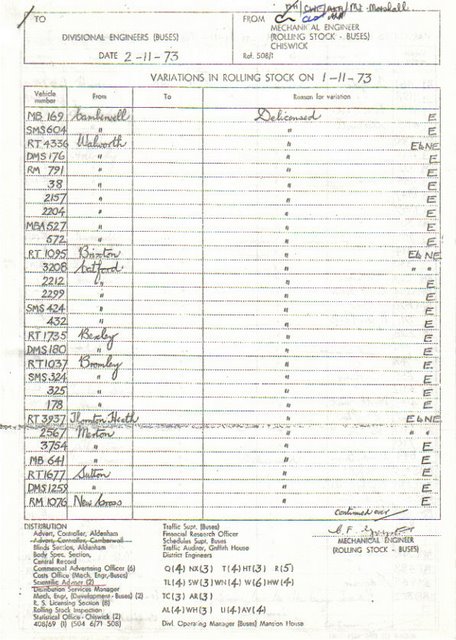 TO
DIVISIONAL ENGINEERS (BUSES)
DATE 2-11-73
Mr. Marshall
FROM
MECHANICAL ENGINEER
(ROLLING STOCK - BUSES)
CHISWICK
Ref. 508/1
VARIATIONS IN ROLLING STOCK ON 1-11-73
Vehicle number From To Reason for variation
MB 169 Camberwell Delicensed E
SMS 604 " " E
RT 4336 Walworth " E & NE
DMS 176 " " E
RM 791 " " E
38 " " E
2157 " " E
2204 " " E
MBA 527 " " E
572 " " E
RT 1095 Brixton " E & NE
3208 Catford " " "
2212 " " E
2299 " " E
SMS 424 " " E
432 " " E
RT 1735 Bexley " E
DMS 180 " " E
RT 1037 Bromley " E
SMS 324 " " E
325 " " E
178 " " E
RT 3937 Thornton Heath " E & NE
2567 Merton " " "
3754 " " E
MB 641 " " E
RT 1677 Sutton " E
DMS 1259 " " E
RM 1076 New Cross " E
continued over
DISTRIBUTION
Advert. Controller, Aldenham
Advert. Controller, Camberwell
Blinds Section, Aldenham
Body Spec. Section,
Central Record
Commercial Advertising Officer (6)
Costs Office (Mech. Engr.-Buses)
Scientific Adviser (2)
Distribution Services Manager
Mech. Engr. (Development - Buses) (2)
R. S. Licensing Section (8)
Rolling Stock Inspection
Statistical Office - Chiswick (2)
408/69 (1) (504 6/71 508)
Traffic Supt. (Buses)
Financial Research Officer
Schedules Supt. Buses
Traffic Auditor, Griffith House
District Engineers
Q(4) NX(3) T(4) HT(3) R(5)
TL(4) SW(3) WN(4) W(6) HW(4)
TC(3) AR(3)
AL(4) WH(3) U(4) AV(4)
Divl. Operating Manager (Buses) Mansion House
MECHANICAL ENGINEER
(ROLLING STOCK - BUSES)